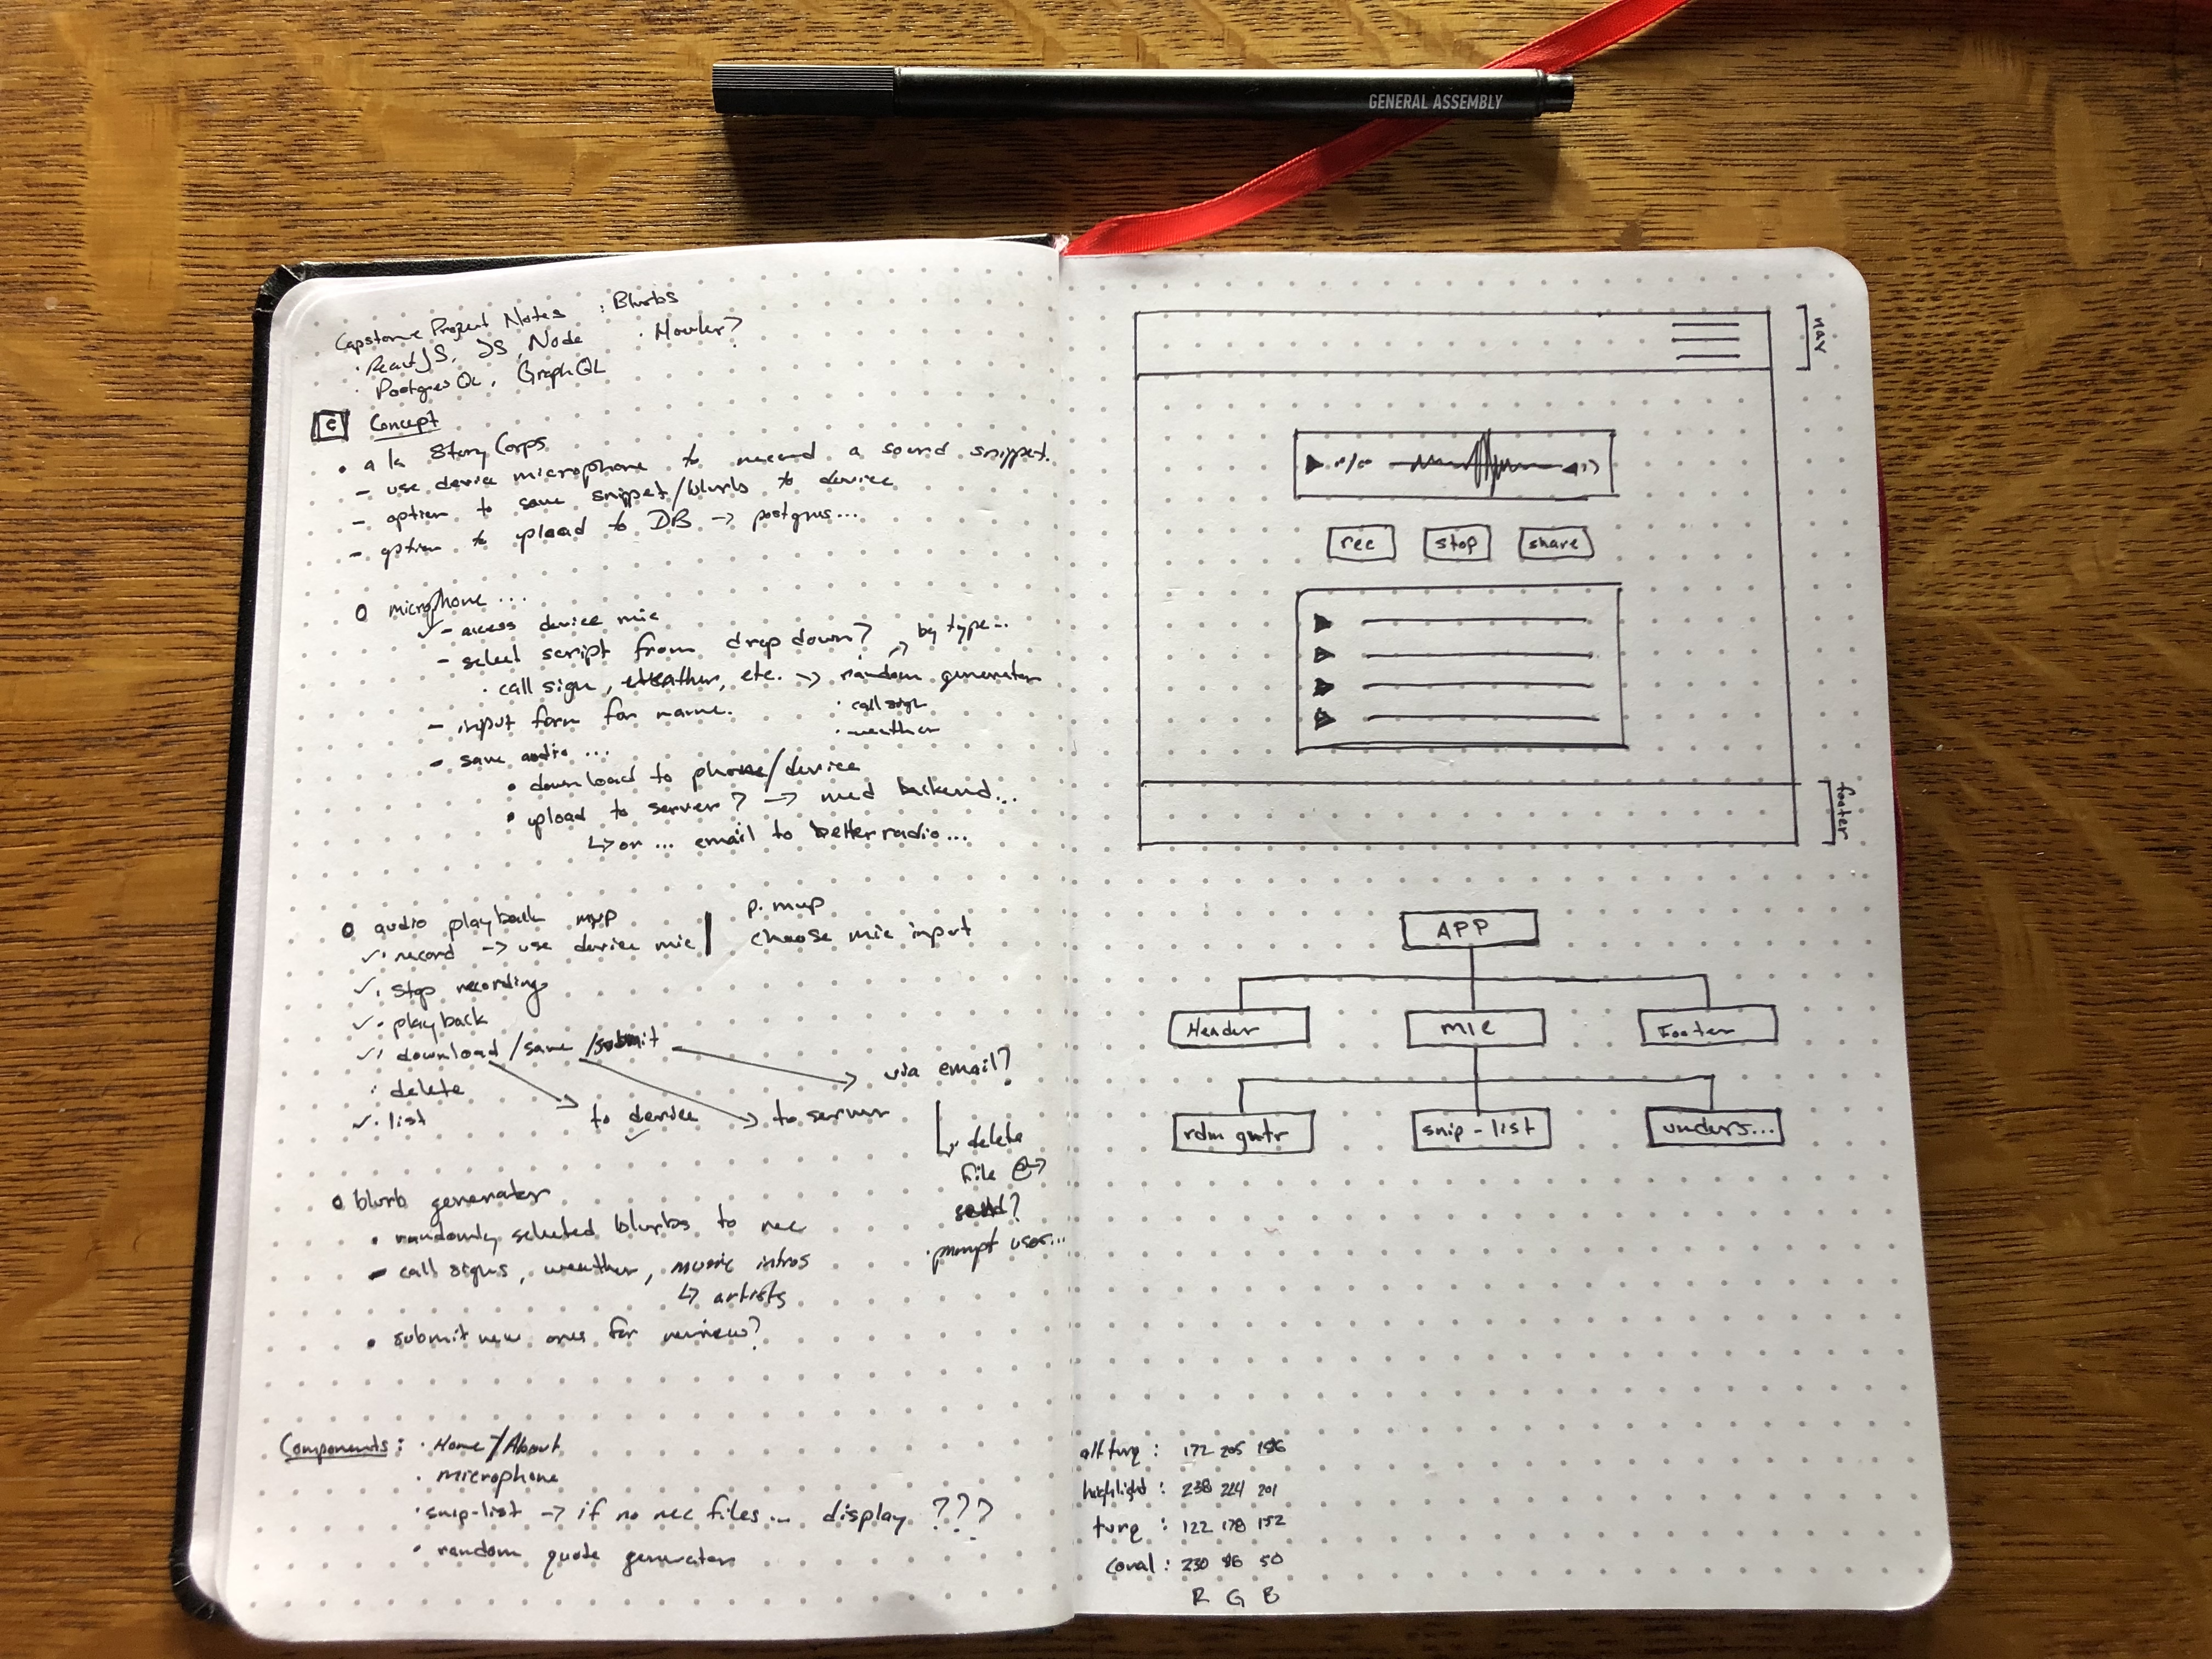 GENERAL ASSEMBLY
Capstone Project Notes : Blurbs
· ReactJS, JS, Node · Howler?
· PostgresQL, GraphQL
C Concept
• a la StoryCorps
- use device microphone to record a sound snippet.
- option to save snippet/blurb to device
- option to upload to DB -> postgres...
o microphone ...
✓ - access device mic
- select script from drop down? -> by type...
· call sign, weather, etc. -> random generator
- input form for name. · call sign
· weather
- save audio ...
• download to phone/device
• upload to server? -> need backend...
↳ or ... email to betterradio...
o audio playback mvp | p.mvp
✓ · record -> use device mic | choose mic input
✓ · stop recording
✓ · playback
✓ · download / save / submit -> via email?
· delete
✓ · list
to device ✓ -> to server
↳ delete
file
send?
· prompt user...
o blurb generator
• randomly selected blurbs to rec
- call signs, weather, music intros
↳ artists
• submit new ones for review?
Components : · Home/About
· microphone
· snip-list -> if no rec files... display ???
• random quote generator
nav
rec stop share
footer
APP
Header MIC Footer
rdm gnrtr snip-list unders...
alt turq : 172 205 186
highlight : 238 224 201
turq : 122 178 152
coral : 230 86 50
R G B